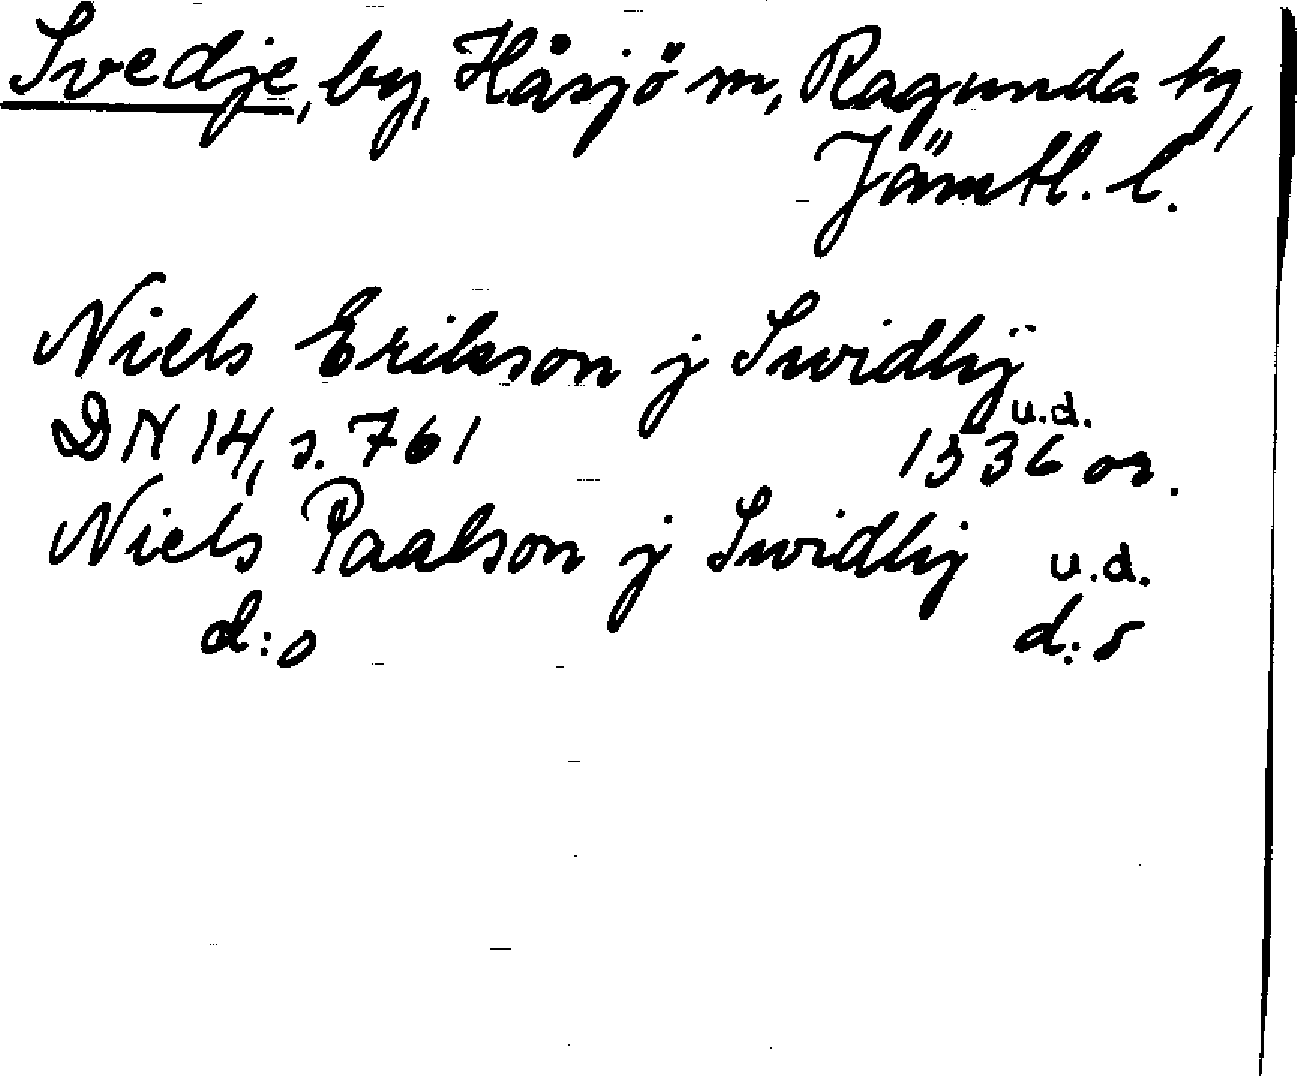 Svedje, by, Håsjö sn, Ragunda tg,
Jämtl. l.
Niels Erikson j Swidhÿ
u.d.
DN 14, s. 761 1536 or.
Niels Paalson j Swidhij u.d.
d:o d:o